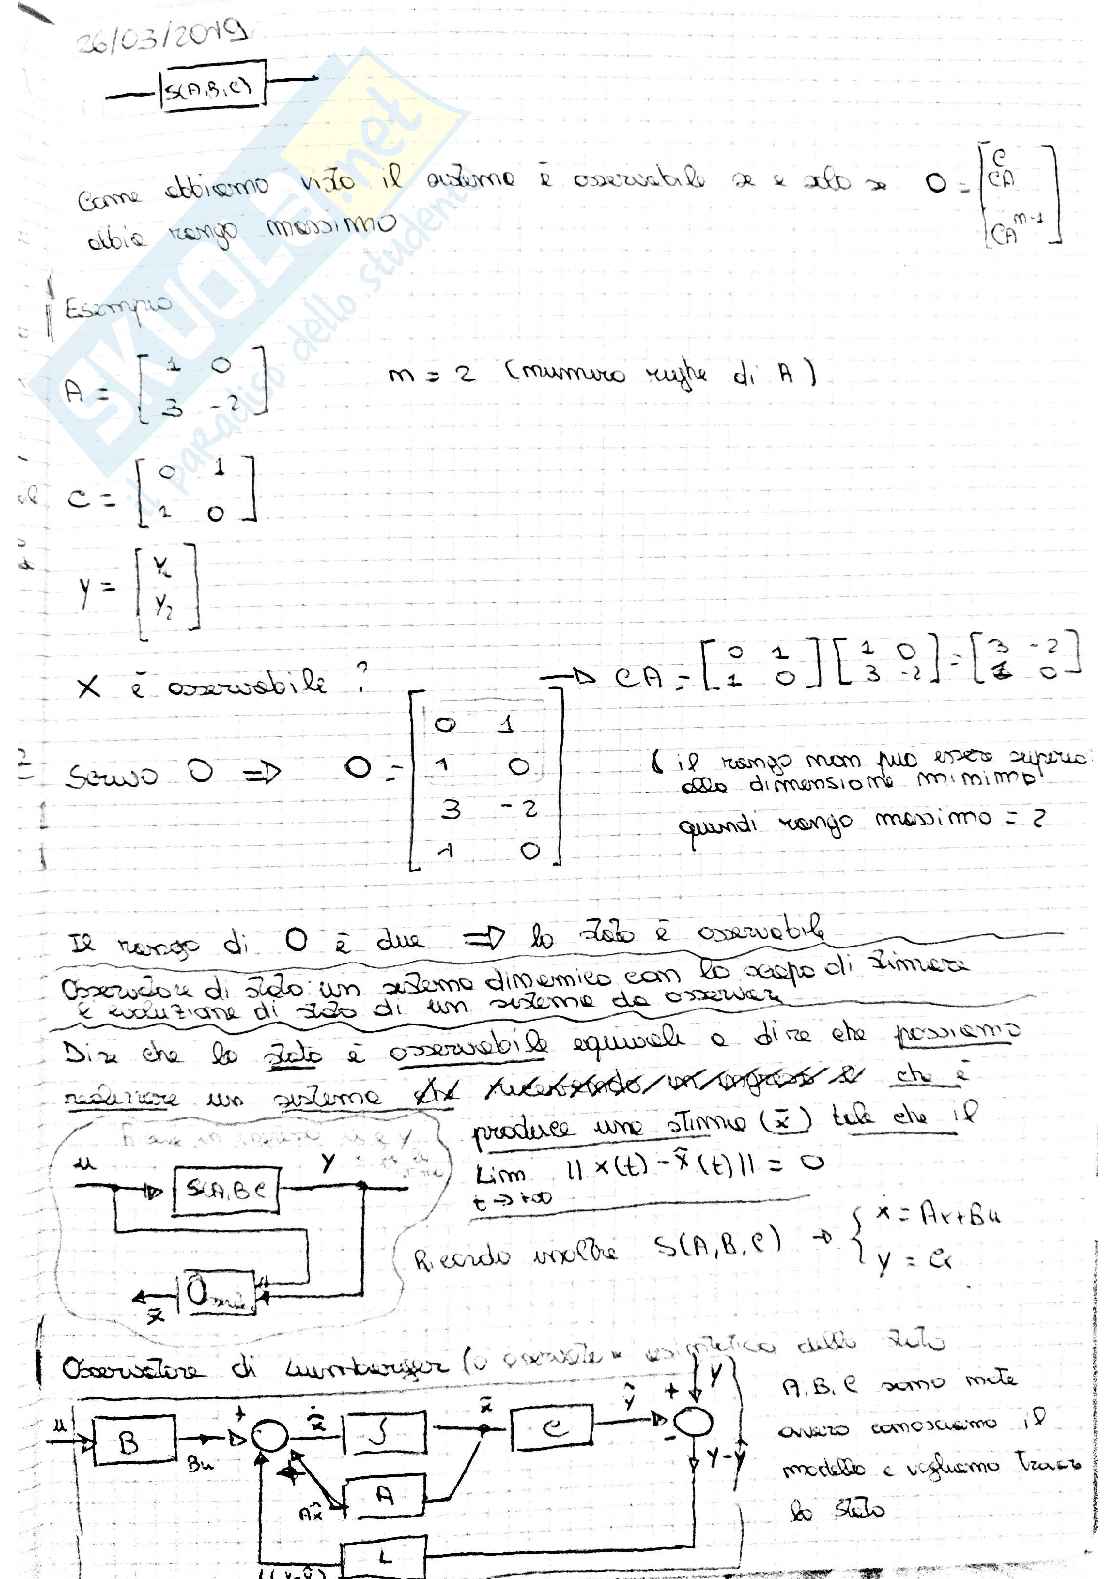 26/03/2019
S(A,B,C)
Come abbiamo visto il sistema è osservabile se e solo se O = [C CA CA^{n-1}]
abbia rango massimo
Esempio
A = [1 0; 3 -2] n = 2 (numero righe di A)
C = [0 1; 1 0]
y = [y1; y2]
X è osservabile? → CA = [0 1; 1 0] [1 0; 3 -2] = [3 -2; 1 0]
Scrivo O ⇒ O = [0 1; 1 0; 3 -2; 1 0]
( il rango non può essere superio
alla dimensione minima
quindi rango massimo = 2
Il rango di O è due ⇒ lo stato è osservabile
Osservatore di stato: un sistema dinamico con lo scopo di stimare
evoluzione di stato di un sistema da osservare
Dire che lo stato è osservabile equivale a dire che possiamo
realizzare un sistema che è
produce una stima (x̃) tale che il
Lim t→+∞ ||x(t) - x̃(t)|| = 0
u S(A,B,C y
u
x̃
Ricordo inoltre S(A,B,C) → { ẋ = Ax+Bu
y = Cx
Osservatore di (o asintotico dello stato
u B Bu + ẋ̂ ∫ x̂ C ŷ + - y
y-ŷ
A Ax̂
L
L(y-ŷ)
A,B,C sono note
ovvero conosciamo il
modello e vogliamo trovare
lo stato
SKUOLA.net
il paradiso dello studente